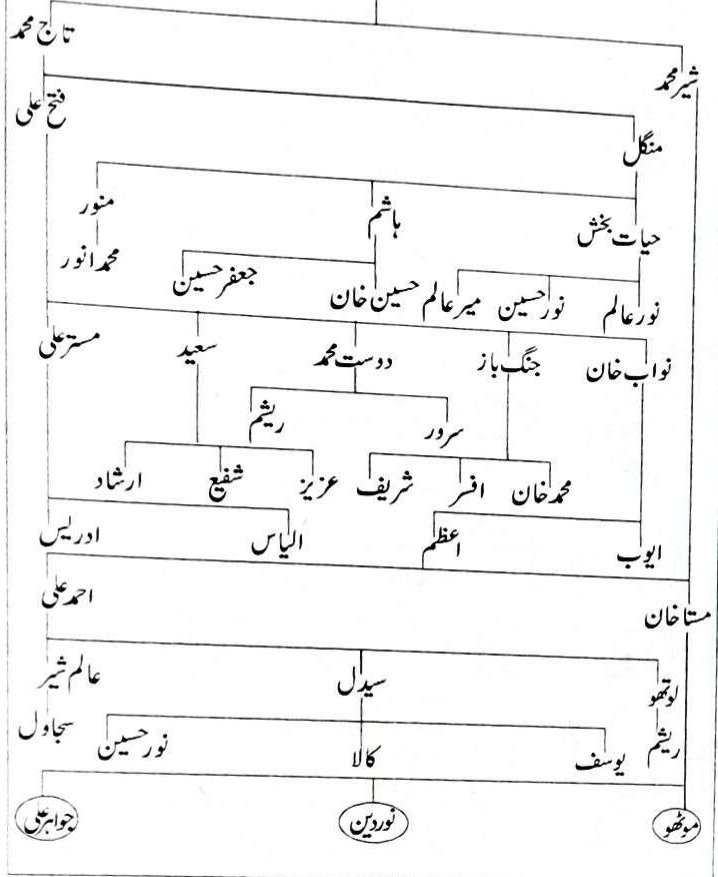 تاج محمد
شیر محمد
فتح علی
منگل
منور
ہاشم
حیات بخش
محمد انور
جعفر حسین
حسین خان
میر عالم
نور حسین
نور عالم
مستر علی
سعید
دوست محمد
جنگ باز
نواب خان
ریشم
سرور
ارشاد
شفیع
عزیز
شریف
افسر
محمد خان
ادریس
الیاس
اعظم
ایوب
احمد علی
مستا خان
عالم شیر
سیدل
لوتھو
سجاول
نور حسین
کالا
یوسف
ریشم
جواہر علی
نور دین
موٹھو